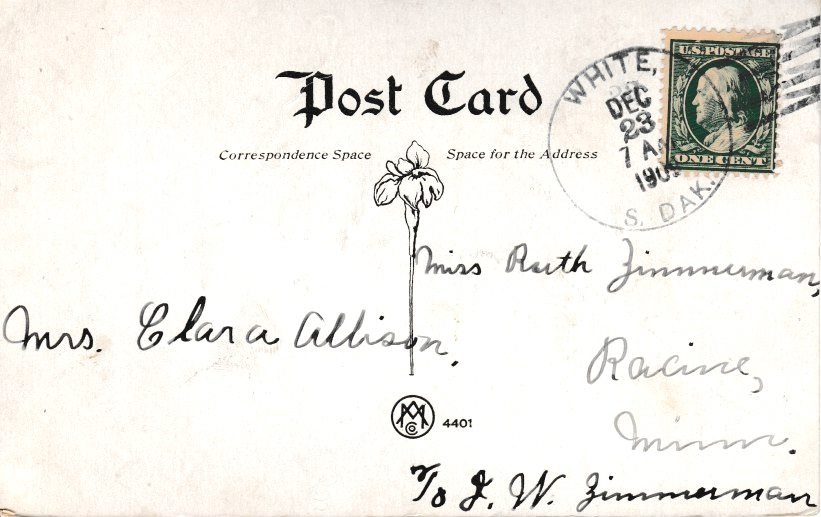 Post Card
Correspondence Space
Space for the Address
WHITE,
DEC
23
7 A
190
S. DAK.
U.S. POSTAGE
ONE CENT
Miss Ruth Zimmerman,
Mrs. Clara Allison.
Racine,
Minn.
4401
c/o J. W. Zimmerman